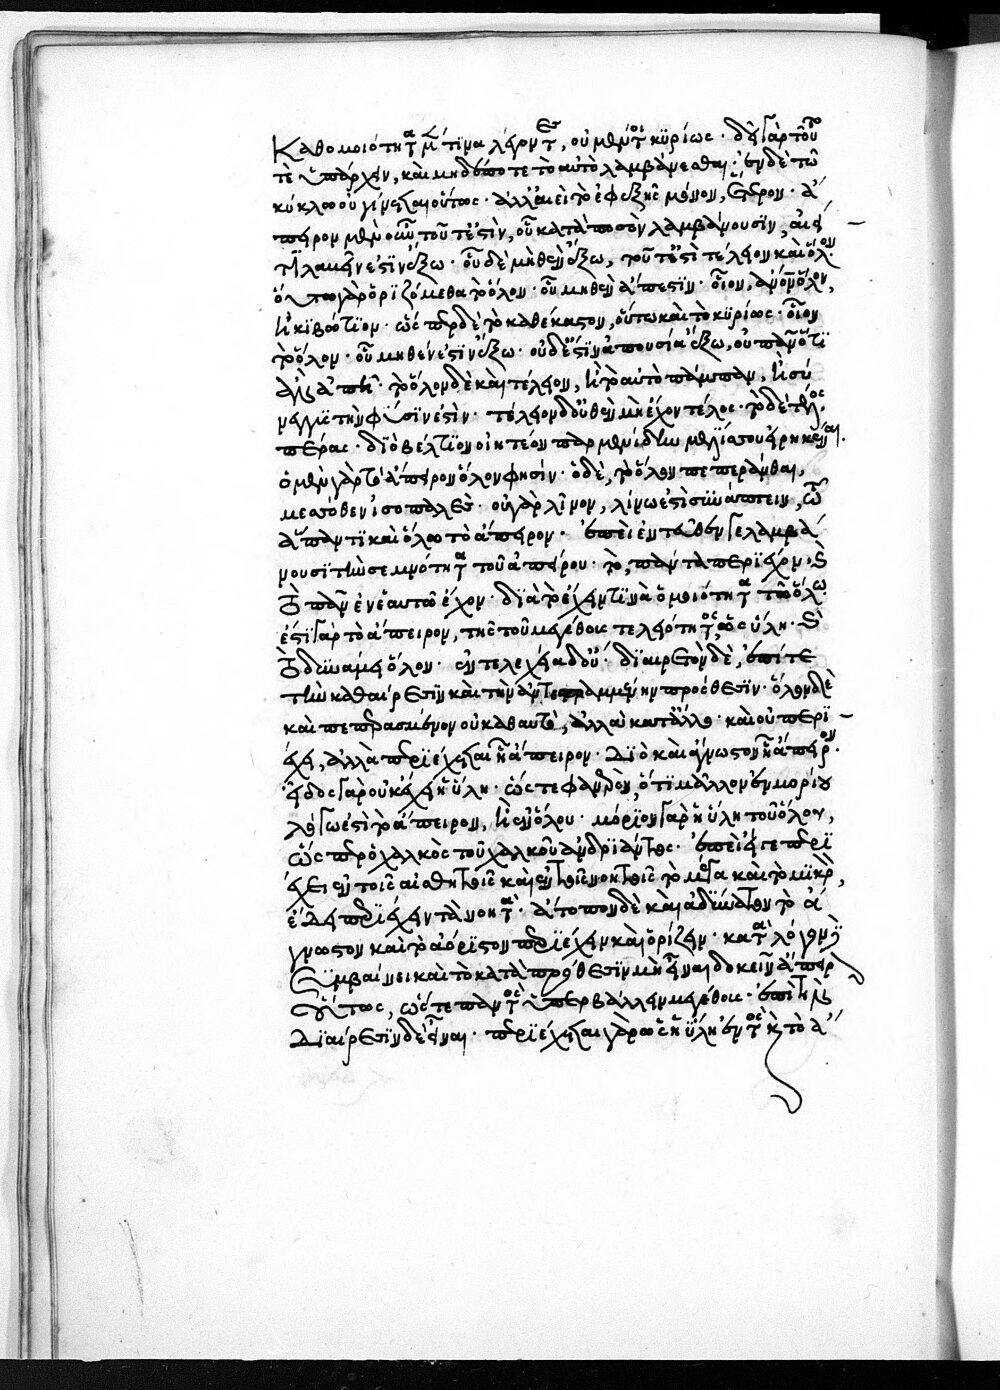 Καθομοιότητα μέν τινα λέγοντες, οὐ μέντοι κυρίως· δεῖ γὰρ τοῦτό
τε ὑπάρχειν, καὶ μηδέποτε τὸ αὐτὸ λαμβάνεσθαι· ἐν δὲ τῶ
κύκλω οὐ γίνεται οὕτως· ἀλλ' ἀεὶ τὸ ἐφεξῆς μόνον, ἕτερον· ἄ
πειρον μὲν οὖν τοῦτ' ἐστὶν, οὗ κατὰ ποσὸν λαμβάνουσιν, αἰεί
τι λαμβεῖν ἐστὶν ἔξω· οὗ δὲ μηθὲν ἔξω, τοῦτ' ἐστὶ τέλειον καὶ ὅλον·
οὕτω γὰρ ὁριζόμεθα τὸ ὅλον· οὗ μηθὲν ἄπεστιν· οἷον, ἄνον ὅλον,
ἢ κιβώτιον· ὥσπερ δὲ τὸ καθέκαστον, οὕτω καὶ τὸ κυρίως· οἷον
τὸ ὅλον· οὗ μηθέν ἐστιν ἔξω· οὗ δέ ἐστιν ἀπουσία ἔξω, οὐ πᾶν ὅτι
ἂν ἀπῆ· τὸ ὅλον δὲ καὶ τέλειον, ἢ τὸ αὐτὸ πάμπαν, ἢ σύ
νεγγυς τὴν φύσιν ἐστίν· τέλειον δ' οὐθὲν μὴ ἔχον τέλος· τὸ δὲ τέλος
πέρας· διὸ βέλτιον οἰητέον παρμενίδην μελίσσου εἰρηκέναι.
ὁ μὲν γὰρ τὸ ἄπειρον ὅλον φησὶν· ὁ δὲ, τὸ ὅλον πεπεράνθαι,
μεσσόθεν ἰσοπαλές· οὐ γὰρ λίνον, λίνω ἐστὶ συνάπτειν, τῶ
ἅπαντι καὶ ὅλω τὸ ἄπειρον· ἐπεὶ ἐντεῦθέν γε λαμβά
νουσι τὴν σεμνότητα τοῦ ἀπείρου· τὸ, πάντα περιέχον καὶ
τὸ πᾶν ἐν ἑαυτῶ ἔχον· διὰ τὸ ἔχειν τινὰ ὁμοιότητα τῶ ὅλω·
ἐστὶ γὰρ τὸ ἄπειρον, τῆς τοῦ μεγέθους τελειότητος ὕλη· καὶ
τὸ δυνάμει ὅλον· ἐντελεχεία δ' οὔ· διαιρετὸν δὲ, ἐπί τε
τὴν καθαίρεσιν καὶ τὴν ἀντεστραμμένην πρόσθεσιν· ὅλον δὲ
καὶ πεπερασμένον οὐ καθαυτὸ, ἀλλὰ κατ' ἄλλο· καὶ οὐ περι
έχει, ἀλλὰ περιέχεται ἧ ἄπειρον· διὸ καὶ ἄγνωστον ἧ ἄπειρον·
εἶδος γὰρ οὐκ ἔχει ἡ ὕλη· ὥστε φανερὸν, ὅτι μᾶλλον ἐν μορίου
λόγω ἐστὶ τὸ ἄπειρον, ἢ ἐν ὅλου· μόριον γὰρ ἡ ὕλη τοῦ ὅλου,
ὥσπερ ὁ χαλκὸς τοῦ χαλκοῦ ἀνδριάντος· ἐπεὶ εἴγε περι
έχει ἐν τοῖς αἰσθητοῖς καὶ ἐν τοῖς νοητοῖς τὸ μέγα καὶ τὸ μικρὸν,
ἔδει περιέχειν τὰ νοητά· ἄτοπον δὲ καὶ ἀδύνατον τὸ ἄ
γνωστον καὶ τὸ ἀόριστον περιέχειν καὶ ὁρίζειν· κατὰ λόγον δὲ
συμβαίνει καὶ τὸ κατὰ πρόσθεσιν μὴ εἶναι δοκεῖν ἄπειρον
οὕτως, ὥστε παντὸς ὑπερβάλλειν μεγέθους· ἐπὶ τὴν
διαίρεσιν δὲ εἶναι· περιέχεται γὰρ ὡς ἡ ὕλη ἐντὸς καὶ τὸ ἄ